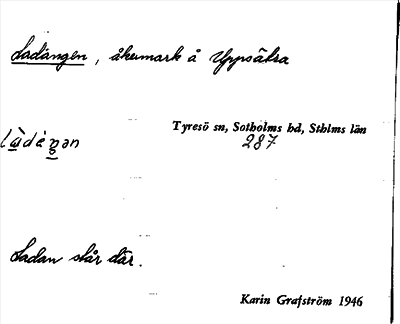 Ladängen, åkermark å Uppsätra
Tyresö sn, Sotholms hd, Sthlms län
287
Ladan står där.
Karin Grafström 1946